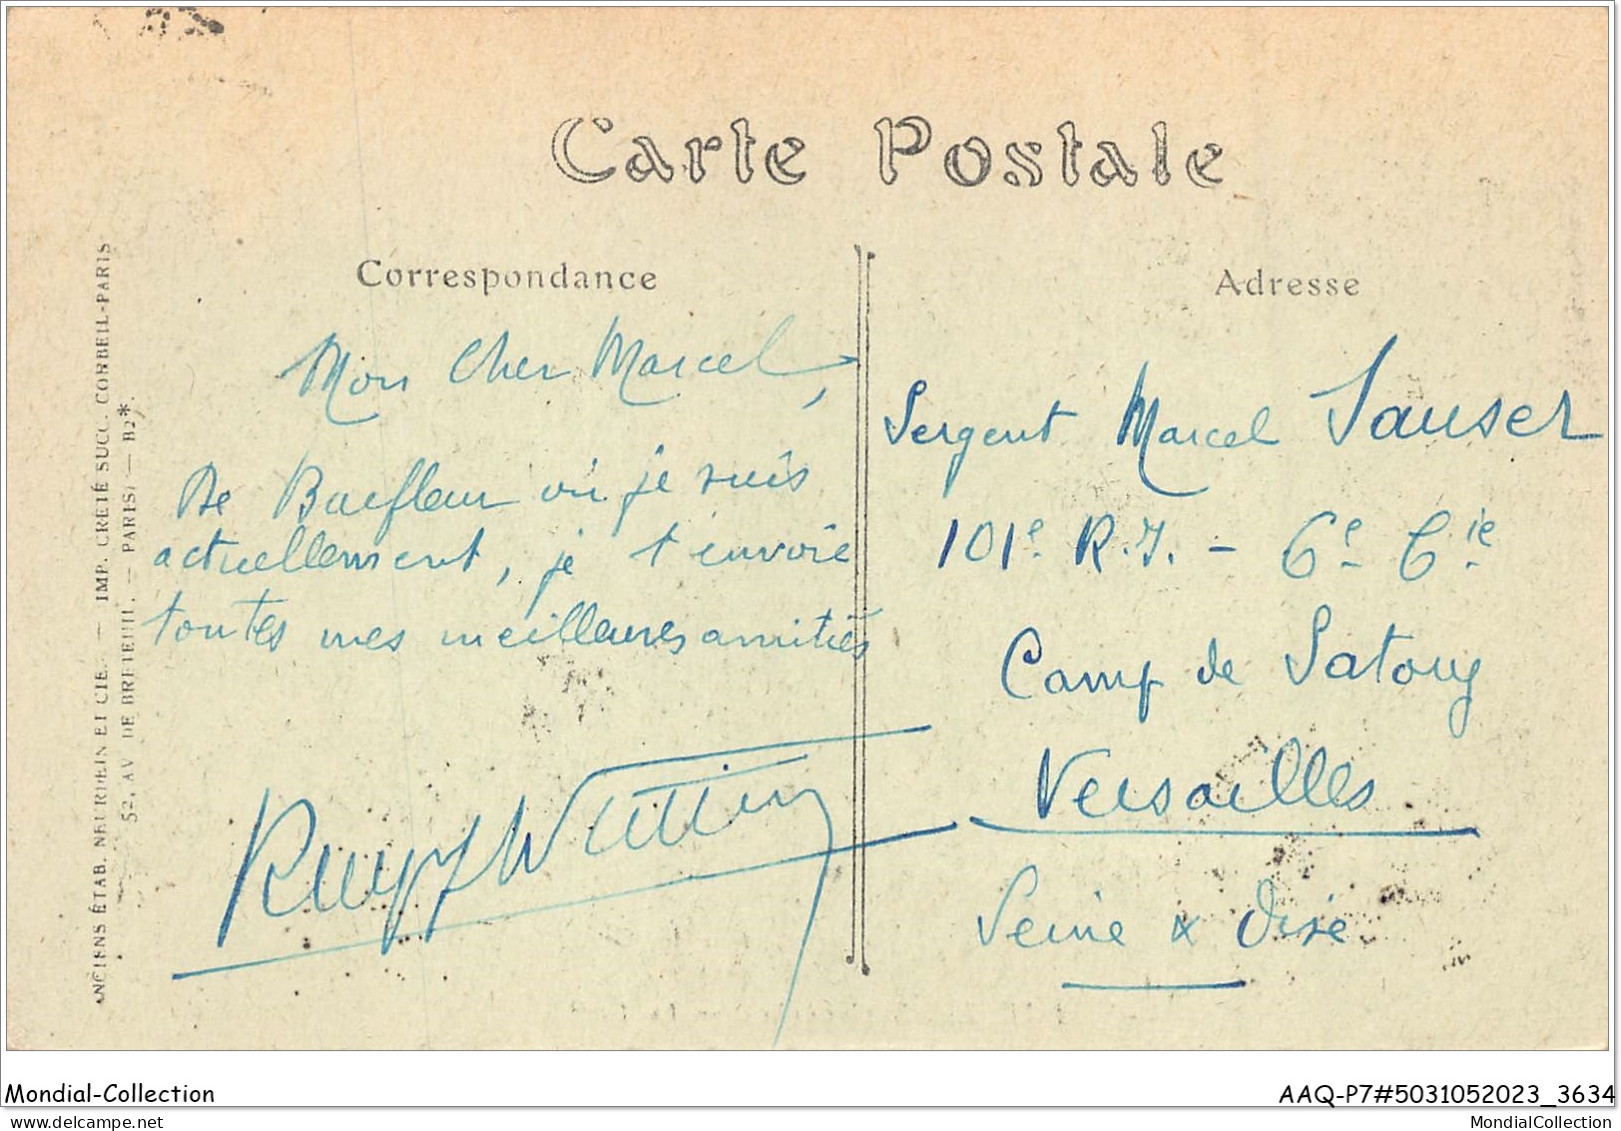 Carte Postale
Correspondance
Adresse
Mon Cher Marcel,
De Barfleur où je suis
actuellement, je t'envoie
toutes mes meilleures amitiés
Sergent Marcel Sauser
101e R.I. - 6e Cie
Camp de Satory
Versailles
Seine & Oise
ANCIENS ÉTAB. NEURDEIN ET CIE. — IMP. CRÉTÉ SUCC. CORBEIL-PARIS
52, AV. DE BRETEUIL. — PARIS) — B2*.
Mondial-Collection
AAQ-P7#5031052023_3634
MondialCollection